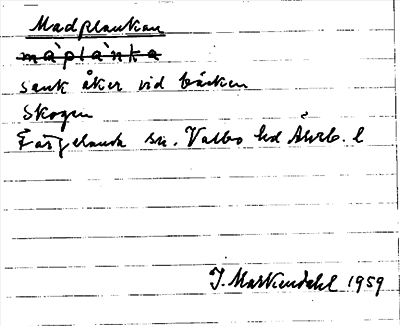 Madplankan
måplanka
sank åker vid bäcken
Skogen
Färgelanda sn. Valbo hd Älvsb. l
J. Markendahl 1959